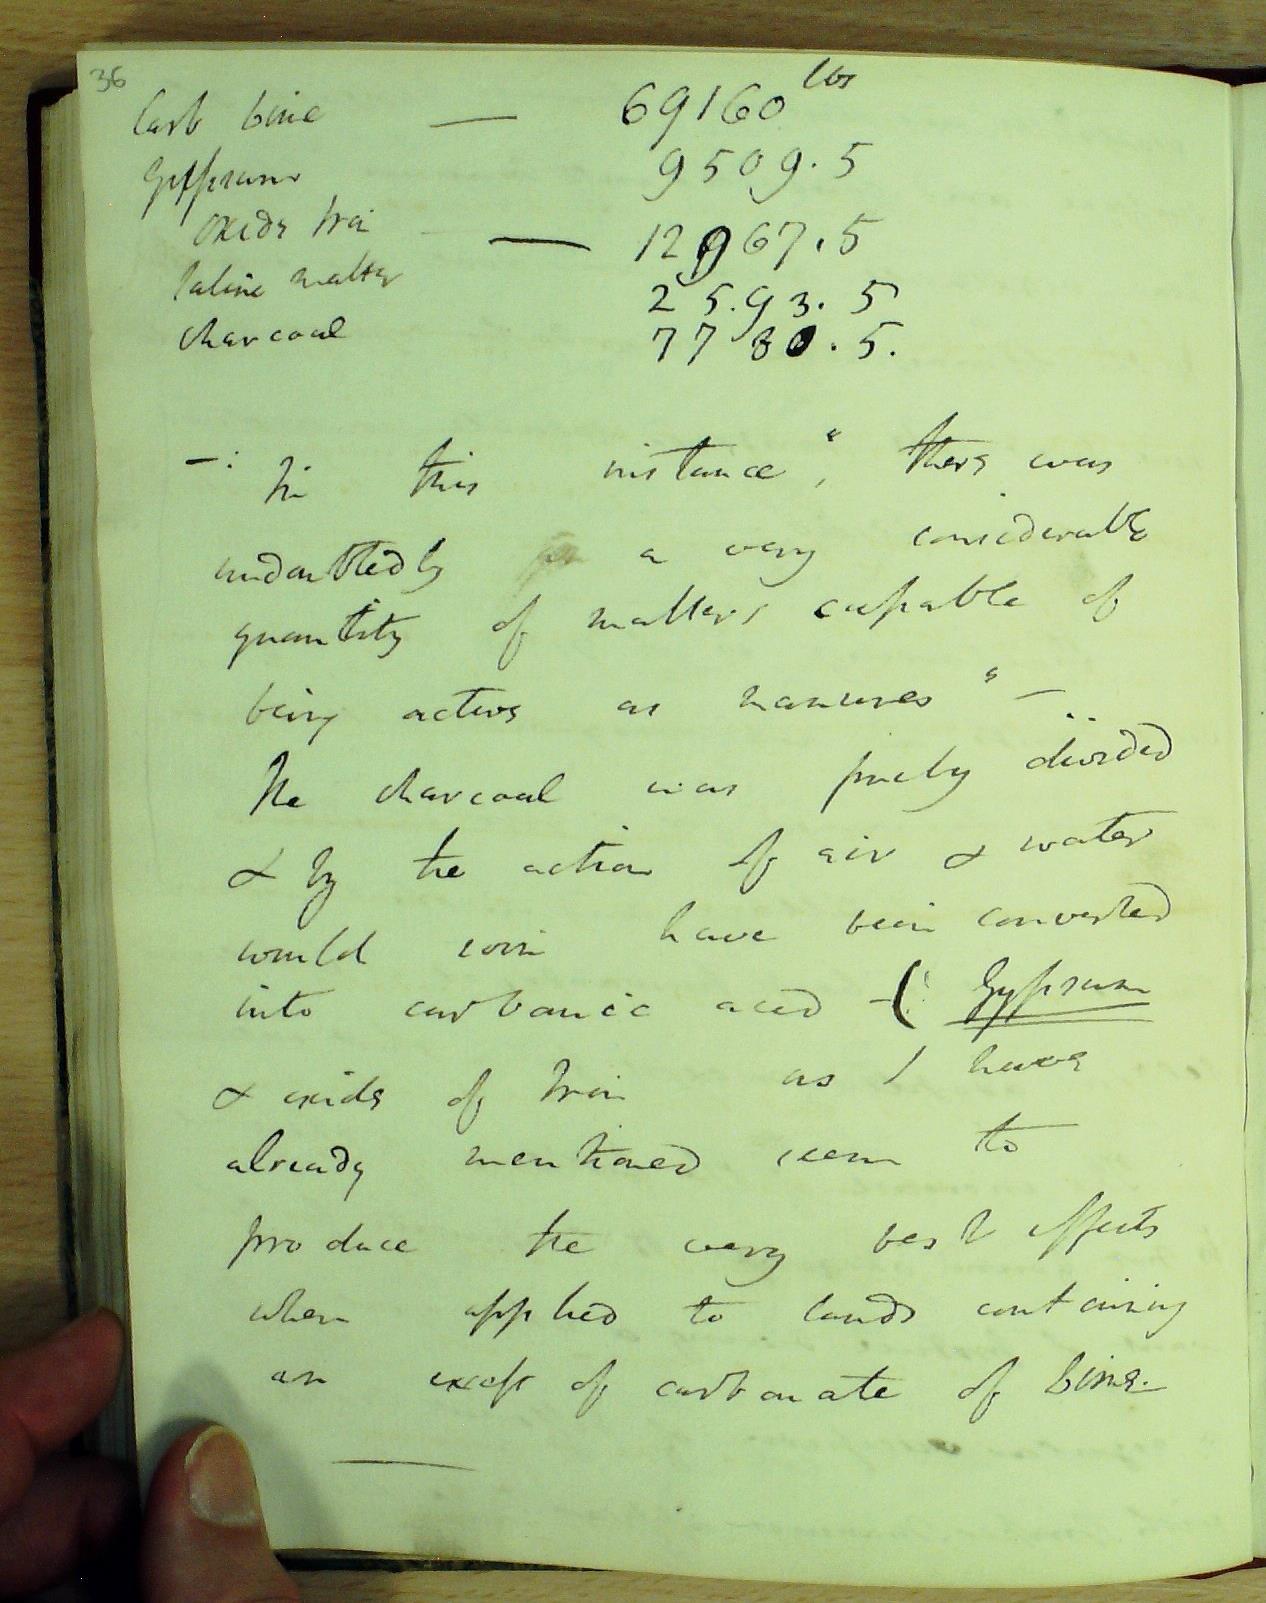 36
Carb Lime — 69160 lbs
Gypsum 9509.5
oxide Iron — 12967.5
Saline matter 2593.5
charcoal 7780.5.
—: In this instance", there was
undoubtedly a very considerable
quantity of matters capable of
being active as manures" —
The charcoal was finely divided
& by the action of air & water
would soon have been converted
into carbonic acid —(: Gypsum
& oxide of Iron as I have
already mentioned seem to
produce the very best effects
when applied to lands containing
an excess of carbonate of Lime.—